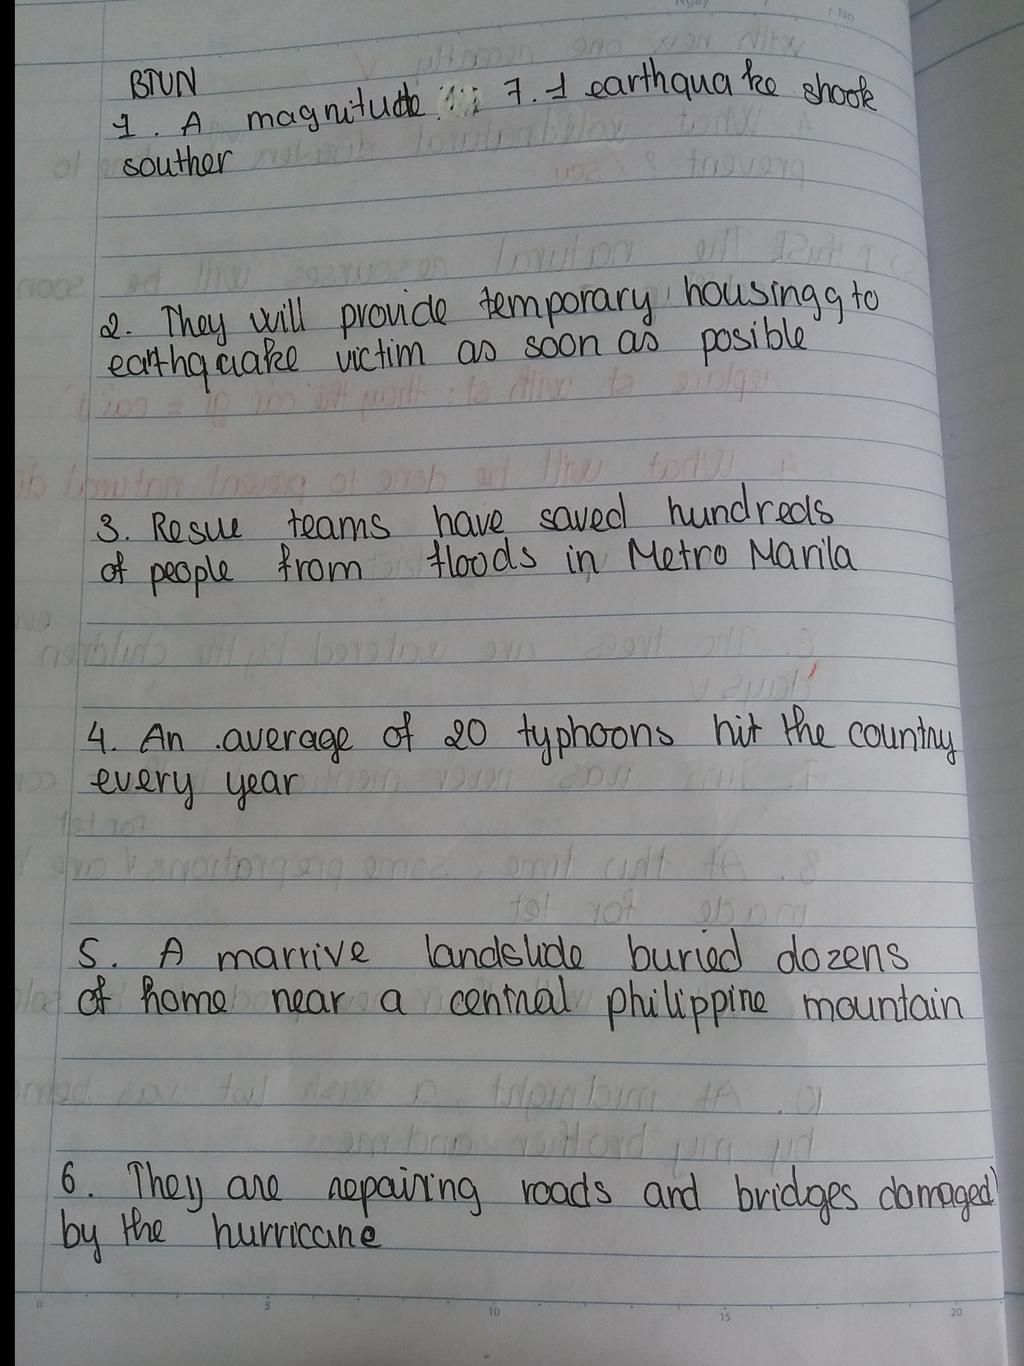 BTVN
1. A magnitude 7.1 earthquake shook
souther
2. They will provide temporary housingg to
earthquake victim as soon as posible
3. Resue teams have saved hundreds
of people from floods in Metro Manila
4. An average of 20 typhoons hit the country
every year
5. A marrive landslide buried dozens
of home near a central philippine mountain
6. They are repairing roads and bridges damaged
by the hurricane
0 5 10 15 20